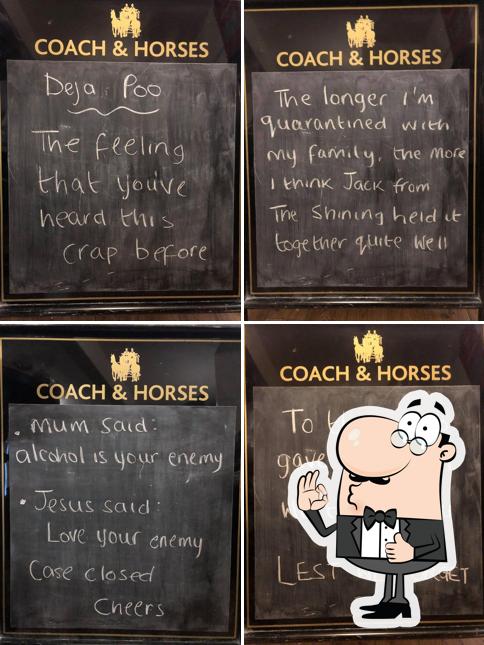 COACH & HORSES
Deja Poo
The feeling
that you've
heard this
crap before
COACH & HORSES
The longer I'm
quarantined with
my family, the more
I think Jack from
The Shining held it
together quite well
COACH & HORSES
. Mum said:
alcohol is your enemy
• Jesus said:
Love your enemy
Case closed
Cheers
COACH & HORSES
To
gave
LEST